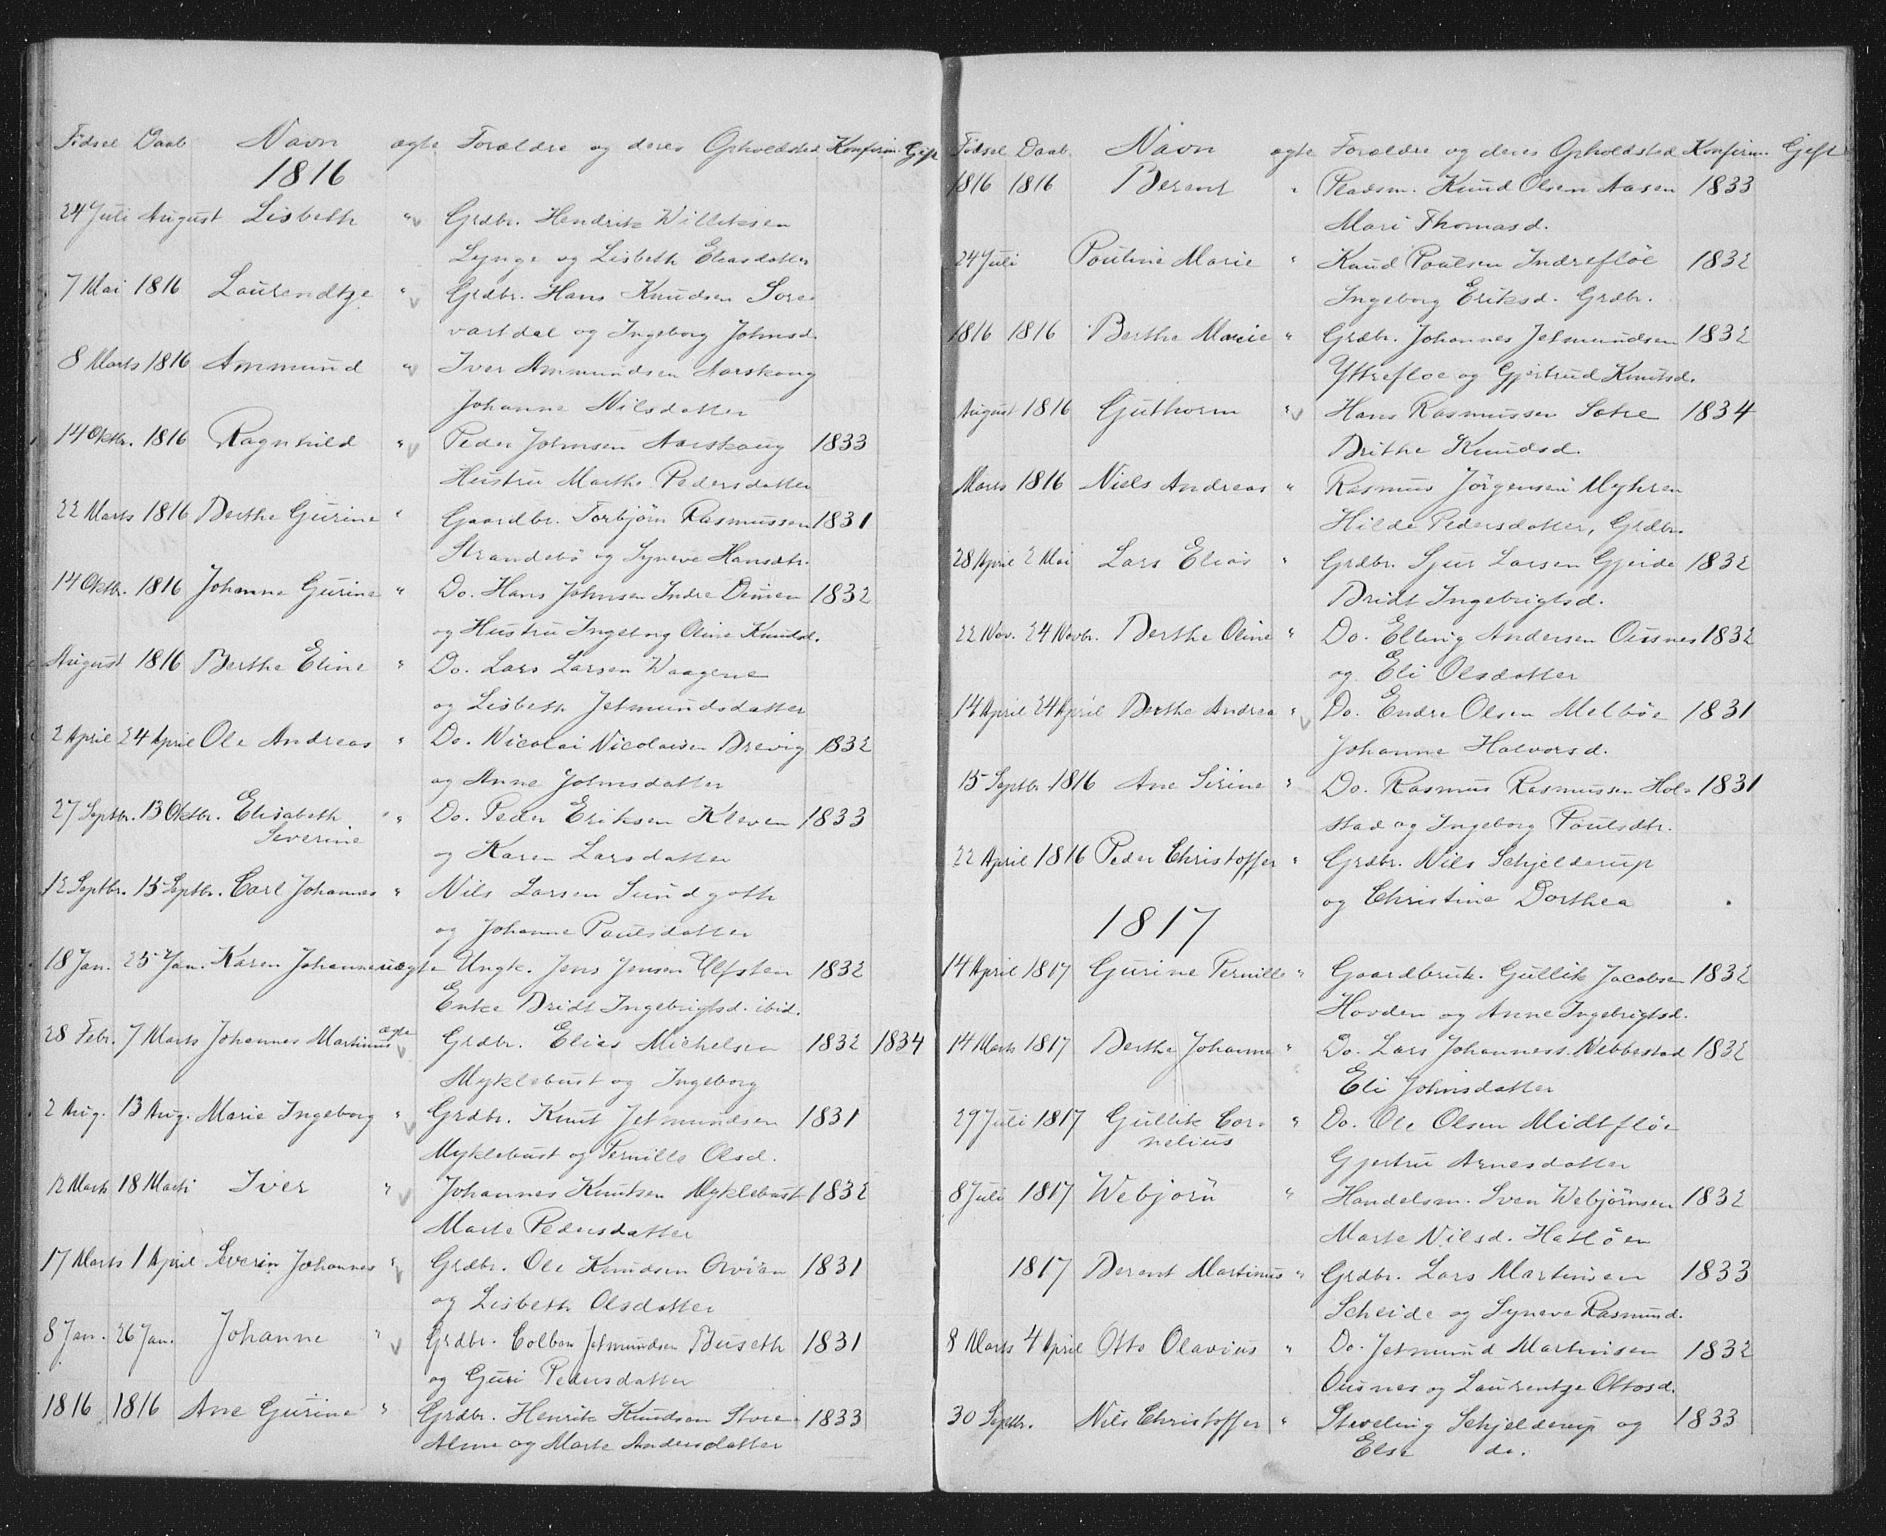 Fødsel Daab Navn ægte Forældre og deres Opholdsted Konfirm. Gift
1816
24 Juli August Lisbeth " Grdbr. Hendrik Williksen
Lynge og Lisbeth Eliasdatter
7 Mai 1816 Laurendtze " Grdbr. Hans Knudsen Søre-
vartdal og Ingeborg Johnsd.
8 Marts 1816 Ammund " Iver Ammundsen Aarskoug
Johanne Nilsdatter
14 Oktbr. 1816 Ragnhild " Peder Johnsen Aarskoug 1833
Hustru Marthe Pedersdatter
22 Marts 1816 Berthe Gurine " Gaardbr. Torbjørn Rasmussen 1831
Strandebø og Syneve Hansdtr.
14 Oktbr. 1816 Johanne Gurine " Do. Hans Johnsen Indre Dimen 1832
og Hustru Ingeborg Oline Knudsd.
August 1816 Berthe Eline " Do. Lars Larsen Waagene
og Lisbeth Jetmundsdatter
2 April 24 April Ole Andreas " Do. Nicolai Nicolaisen Drevig 1832
og Anne Johnsdatter
27 Septbr. 13 Oktbr. Elisabeth " Do. Peder Eriksen Kleven 1833
Severine
og Karen Larsdatter
12 Septbr. 15 Septbr. Carl Johannes " Nils Larsen Sundgoth
og Johanne Paulsdatter
18 Jan. 25 Jan. Karen Johanne uægte Ungk. Jens Jensen Ulfsten 1832
Enke Bridt Ingebrigtsd. ibid.
28 Febr. 7 Marts Johannes Martinus ægte Grdbr. Elias Michelsen 1832 1834
Myklebust og Ingeborg
2 Aug. 13 Aug. Marie Ingeborg " Grdbr. Knut Jetmundsen 1831
Myklebust og Pernille Olsd.
12 Marts 18 Marts Iver " Johannes Knutsen Myklebust 1832
Marte Pedersdatter
17 Marts 1 April Severin Johannes " Grdbr. Ole Knudsen Qvian 1831
og Lisbeth Olsdatter
8 Jan. 26 Jan. Johanne " Grdbr. Colban Jetmundsen Buseth 1831
og Guri Pedersdatter
1816 1816 Ane Gurine " Grdbr. Henrik Knudsen Store- 1833
Alme og Marte Andersdatter
Fødsel Daab. Navn ægte Forældre og deres Opholdsted Konfirm. Gift
1816 1816 Berent " Pladsm. Knud Olsen Aasen 1833
Mari Thomasd.
24 Juli Pouline Marie " Knud Poulsen Indrefløe 1832
Ingeborg Eriksd. Grdbr.
1816 1816 Berthe Marie " Grdbr. Johannes Jetmundsen 1832
Yttrefloe og Gjertrud Knutsd.
August 1816 Guthorm " Hans Rasmussen Sætre 1834
Brithe Knudsd.
Marts 1816 Niels Andreas " Rasmus Jørgensen Myhren
Hilde Pedersdatter, Grdbr.
28 April 2 Mai Lars Elias " Grdbr. Sjur Larsen Gjerde 1832
Bridt Ingebrigtsd.
22 Nov. 24 Novbr. Berthe Oline " Do. Elling Andersen Ousnes 1832
og Eli Olsdatter
14 April 24 April Berthe Andrea " Do. Endre Olsen Melbøe 1831
Johanne Halvorsd.
15 Septbr 1816 Ane Sirine " Do. Rasmus Rasmussen Hol- 1831
stad og Ingeborg Poulsdtr.
22 April 1816 Peder Christoffer " Grdbr. Nils Schjelderup
og Christine Dorthea
1817
14 April 1817 Gurine Pernille " Gaardbruk. Gullik Jacobsen 1832
Hovden og Anne Ingebrigtsd.
14 Marts 1817 Berthe Johanne " Do. Lars Johanness. Nebbestad 1832
Eli Johnsdatter
29 Juli 1817 Gullik Cor- " Do. Ole Olsen Midtfløe
nelius
Gjertru Arnesdatter
8 Juli 1817 Webjørn " Handelsm. Sven Webjørnsen 1832
Marte Nilsd. Hatløen
1817 Berent Martinus " Grdbr. Lars Martinsen 1833
Scheide og Syneve Rasmusd.
8 Marts 4 April Otto Olavius " Do. Jetmund Martinsen 1832
Ousnes og Laurentze Ottosd.
30 Septbr. Nils Christoffer " Schjelderup og 1833
Else do.